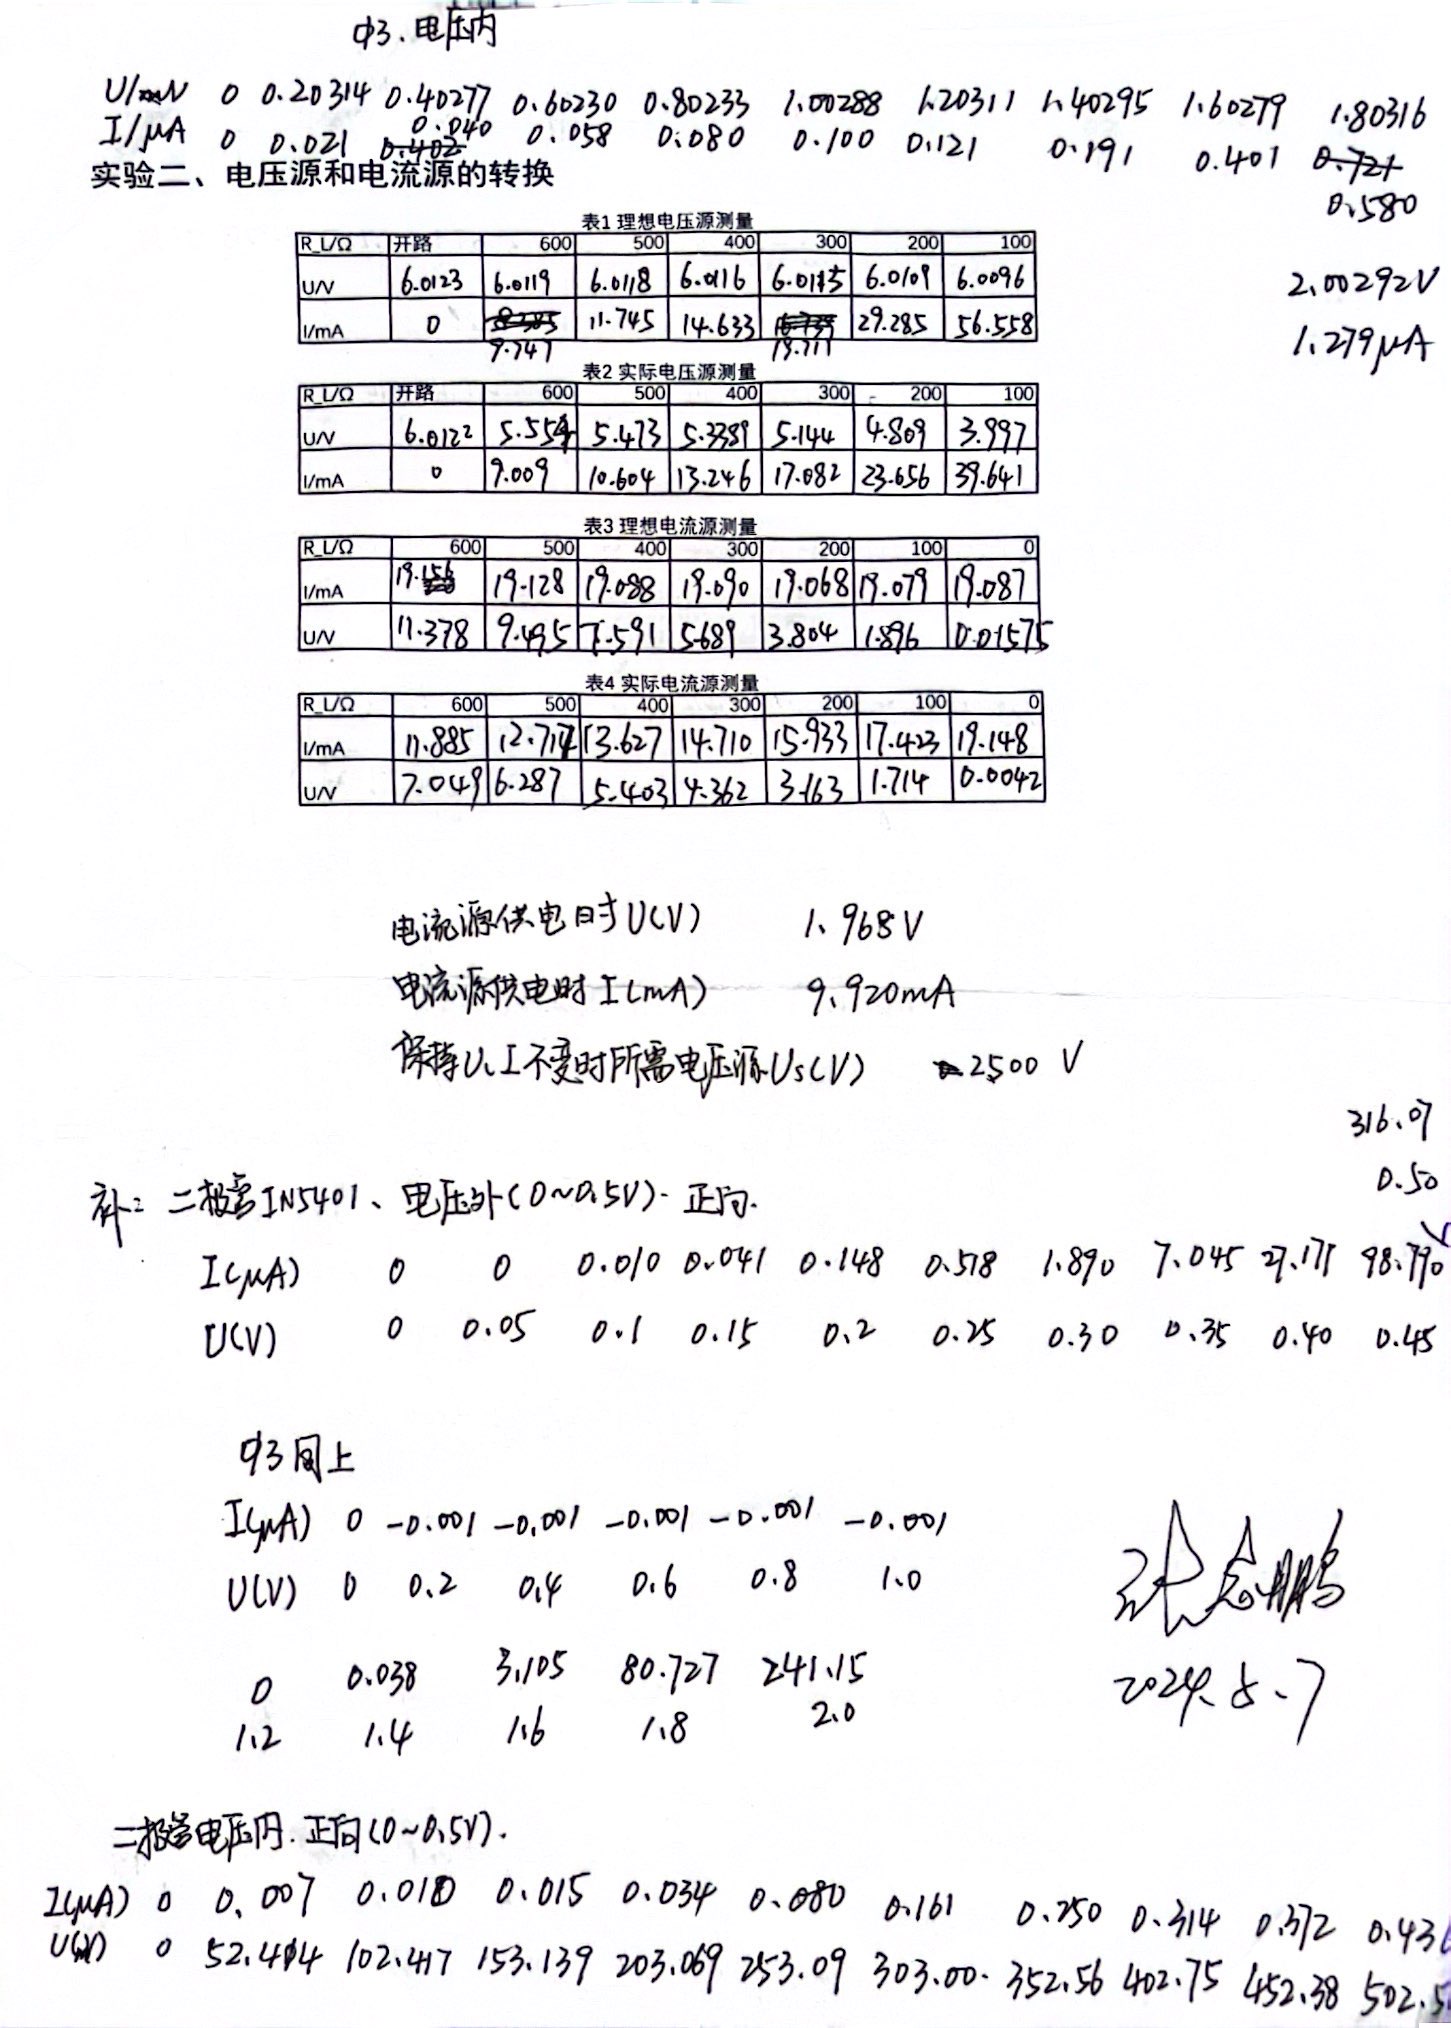 Φ3. 电压内
U/V 0 0.20314 0.40277 0.60230 0.80233 1.00288 1.20311 1.40295 1.60279 1.80316
I/μA 0 0.021 0.040 0.058 0.080 0.100 0.121 0.191 0.401 0.580
2.00292V
1.279μA
实验二、电压源和电流源的转换
表1 理想电压源测量
R_L/Ω 开路 600 500 400 300 200 100
U/V 6.0123 6.0119 6.0118 6.0116 6.0115 6.0109 6.0096
I/mA 0 9.747 11.745 14.633 19.711 29.285 56.558
表2 实际电压源测量
R_L/Ω 开路 600 500 400 300 200 100
U/V 6.0122 5.554 5.473 5.3389 5.144 4.809 3.997
I/mA 0 9.009 10.604 13.246 17.082 23.656 39.641
表3 理想电流源测量
R_L/Ω 600 500 400 300 200 100 0
I/mA 19.156 19.128 19.088 19.090 19.068 19.079 19.087
U/V 11.378 9.495 7.591 5.689 3.804 1.896 0.01575
表4 实际电流源测量
R_L/Ω 600 500 400 300 200 100 0
I/mA 11.885 12.714 13.627 14.710 15.933 17.423 19.148
U/V 7.049 6.287 5.403 4.362 3.163 1.714 0.0042
电流源供电时U(V) 1.968V
电流源供电时I(mA) 9.920mA
保持U、I不变时所需电压源Us(V) 2.500 V
316.07
0.50
补: 二极管IN5401、电压外(0~0.5V). 正向.
I(μA) 0 0 0.010 0.041 0.148 0.518 1.890 7.045 27.171 98.790
U(V) 0 0.05 0.1 0.15 0.2 0.25 0.30 0.35 0.40 0.45
Φ3同上
I(μA) 0 -0.001 -0.001 -0.001 -0.001 -0.001
U(V) 0 0.2 0.4 0.6 0.8 1.0
0 0.038 3.105 80.727 241.15
1.2 1.4 1.6 1.8 2.0
2024.5.7
二极管电压内. 正向(0~0.5V).
I(μA) 0 0.007 0.010 0.015 0.034 0.080 0.161 0.250 0.314 0.372 0.43
U 0 52.414 102.417 153.139 203.069 253.09 303.00. 352.56 402.75 452.38 502.5